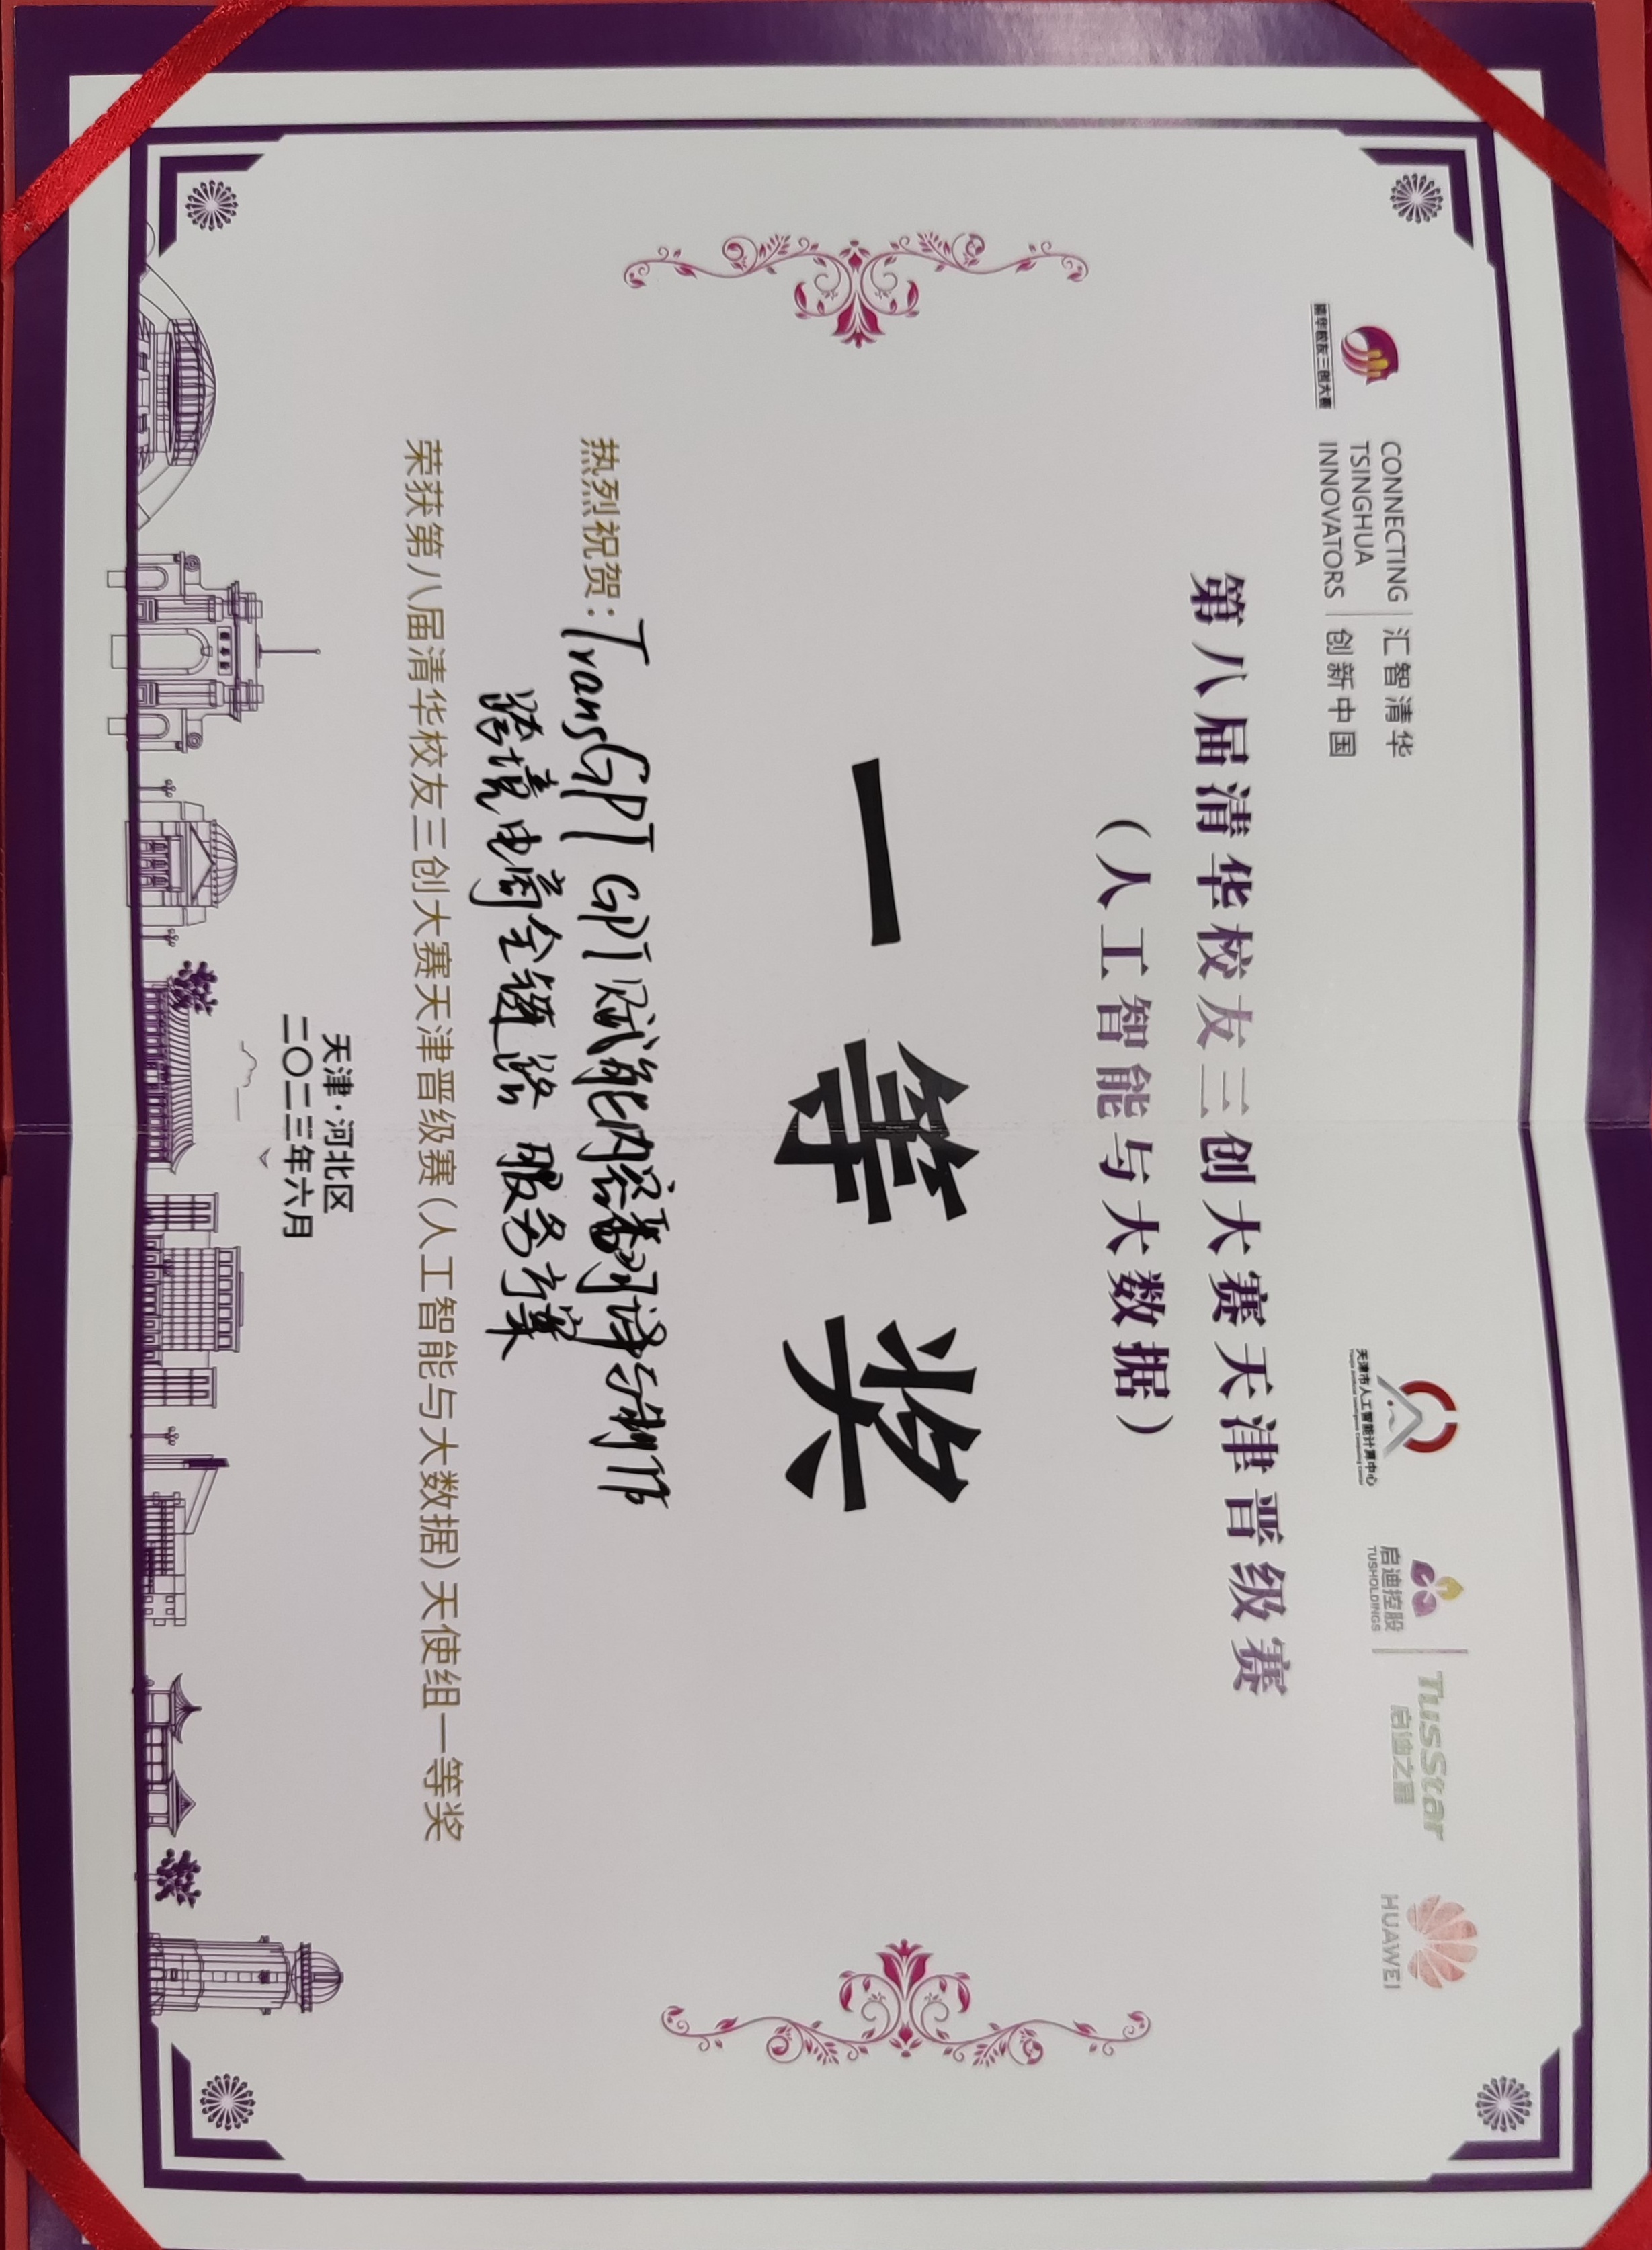 清华校友三创大赛
CONNECTING
TSINGHUA
INNOVATORS
汇智清华
创新中国
天津市人工智能计算中心
Tianjin Artificial Intelligence Computing Center
启迪控股
TUSHOLDINGS
TusStar
启迪之星
HUAWEI
第八届清华校友三创大赛天津晋级赛
（人工智能与大数据）
一等奖
热烈祝贺：TransGPT GPT赋能内容翻译与制作
跨境电商全链路 服务方案
荣获第八届清华校友三创大赛天津晋级赛（人工智能与大数据）天使组一等奖
天津·河北区
二〇二三年六月